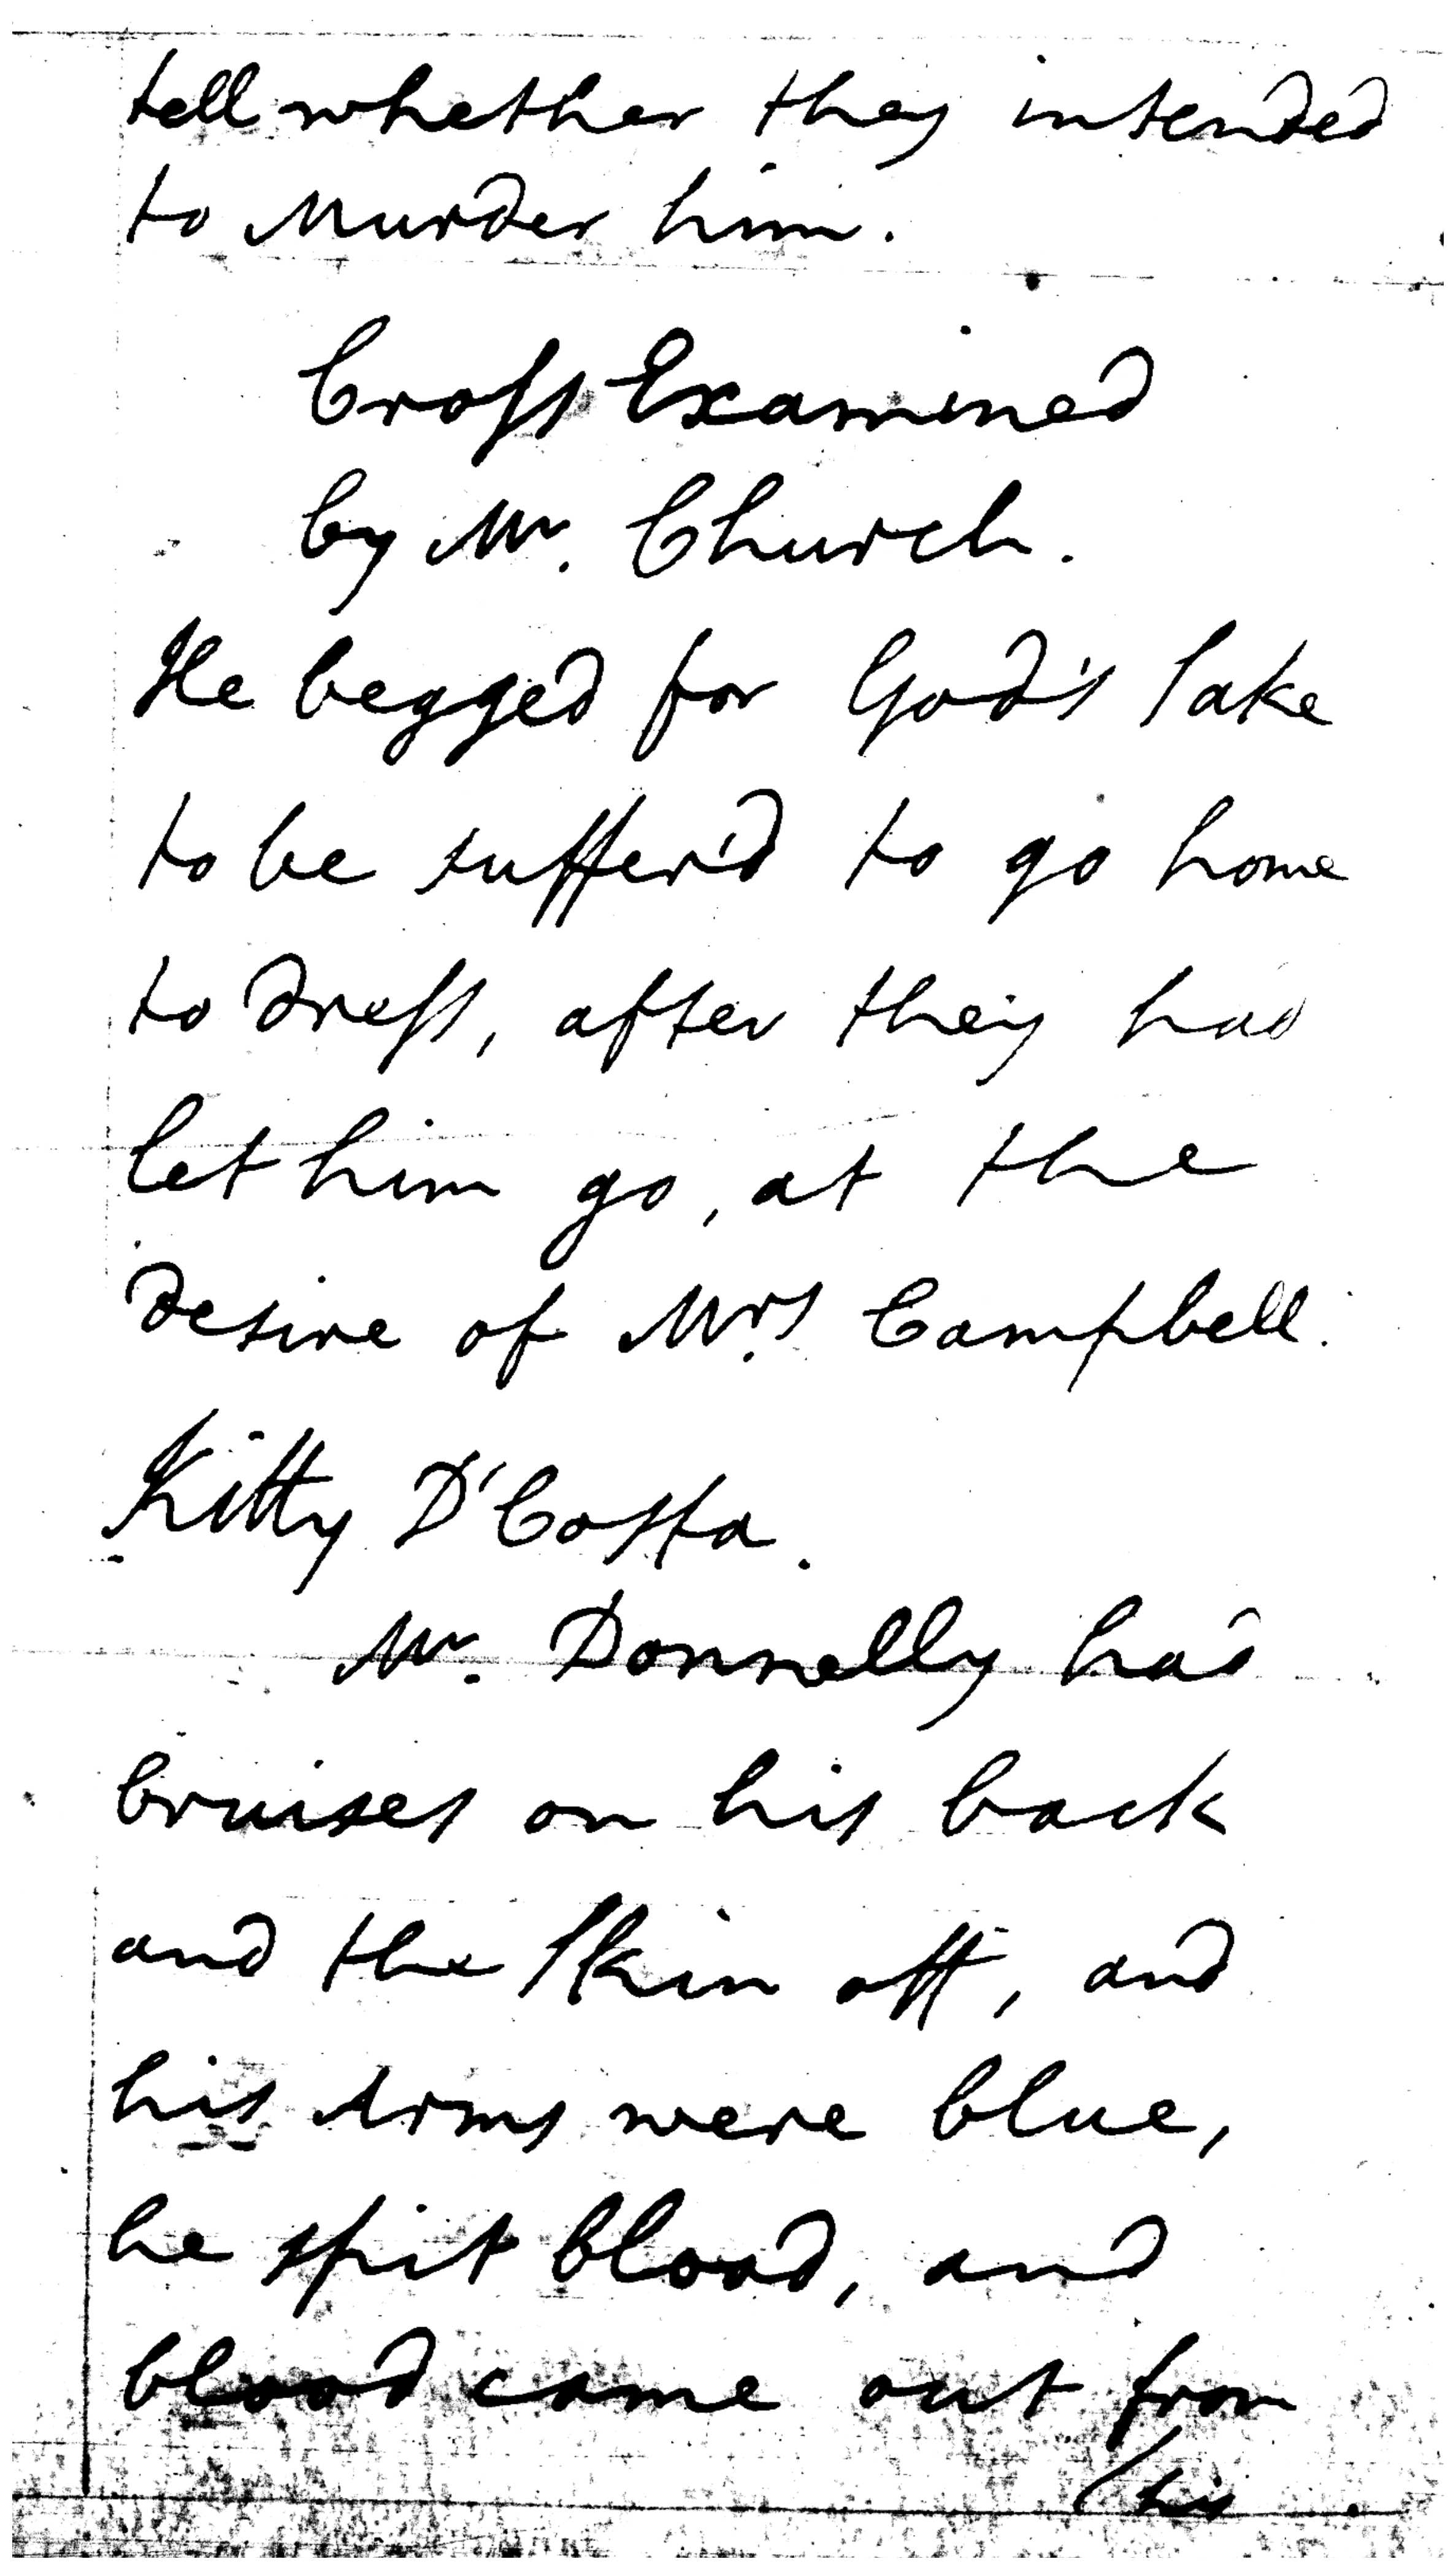 tell whether they intended
to Murder him.
Cross Examined
by Mr. Church.
He begged for God's Sake
to be suffer'd to go home
to dress, after they had
let him go, at the
desire of Mrs. Campbell.
Kitty D'Costa.
Mr. Donnelly had
bruises on his back
and the Skin off, and
his Arms were blue,
he spit blood, and
blood came out from
(his